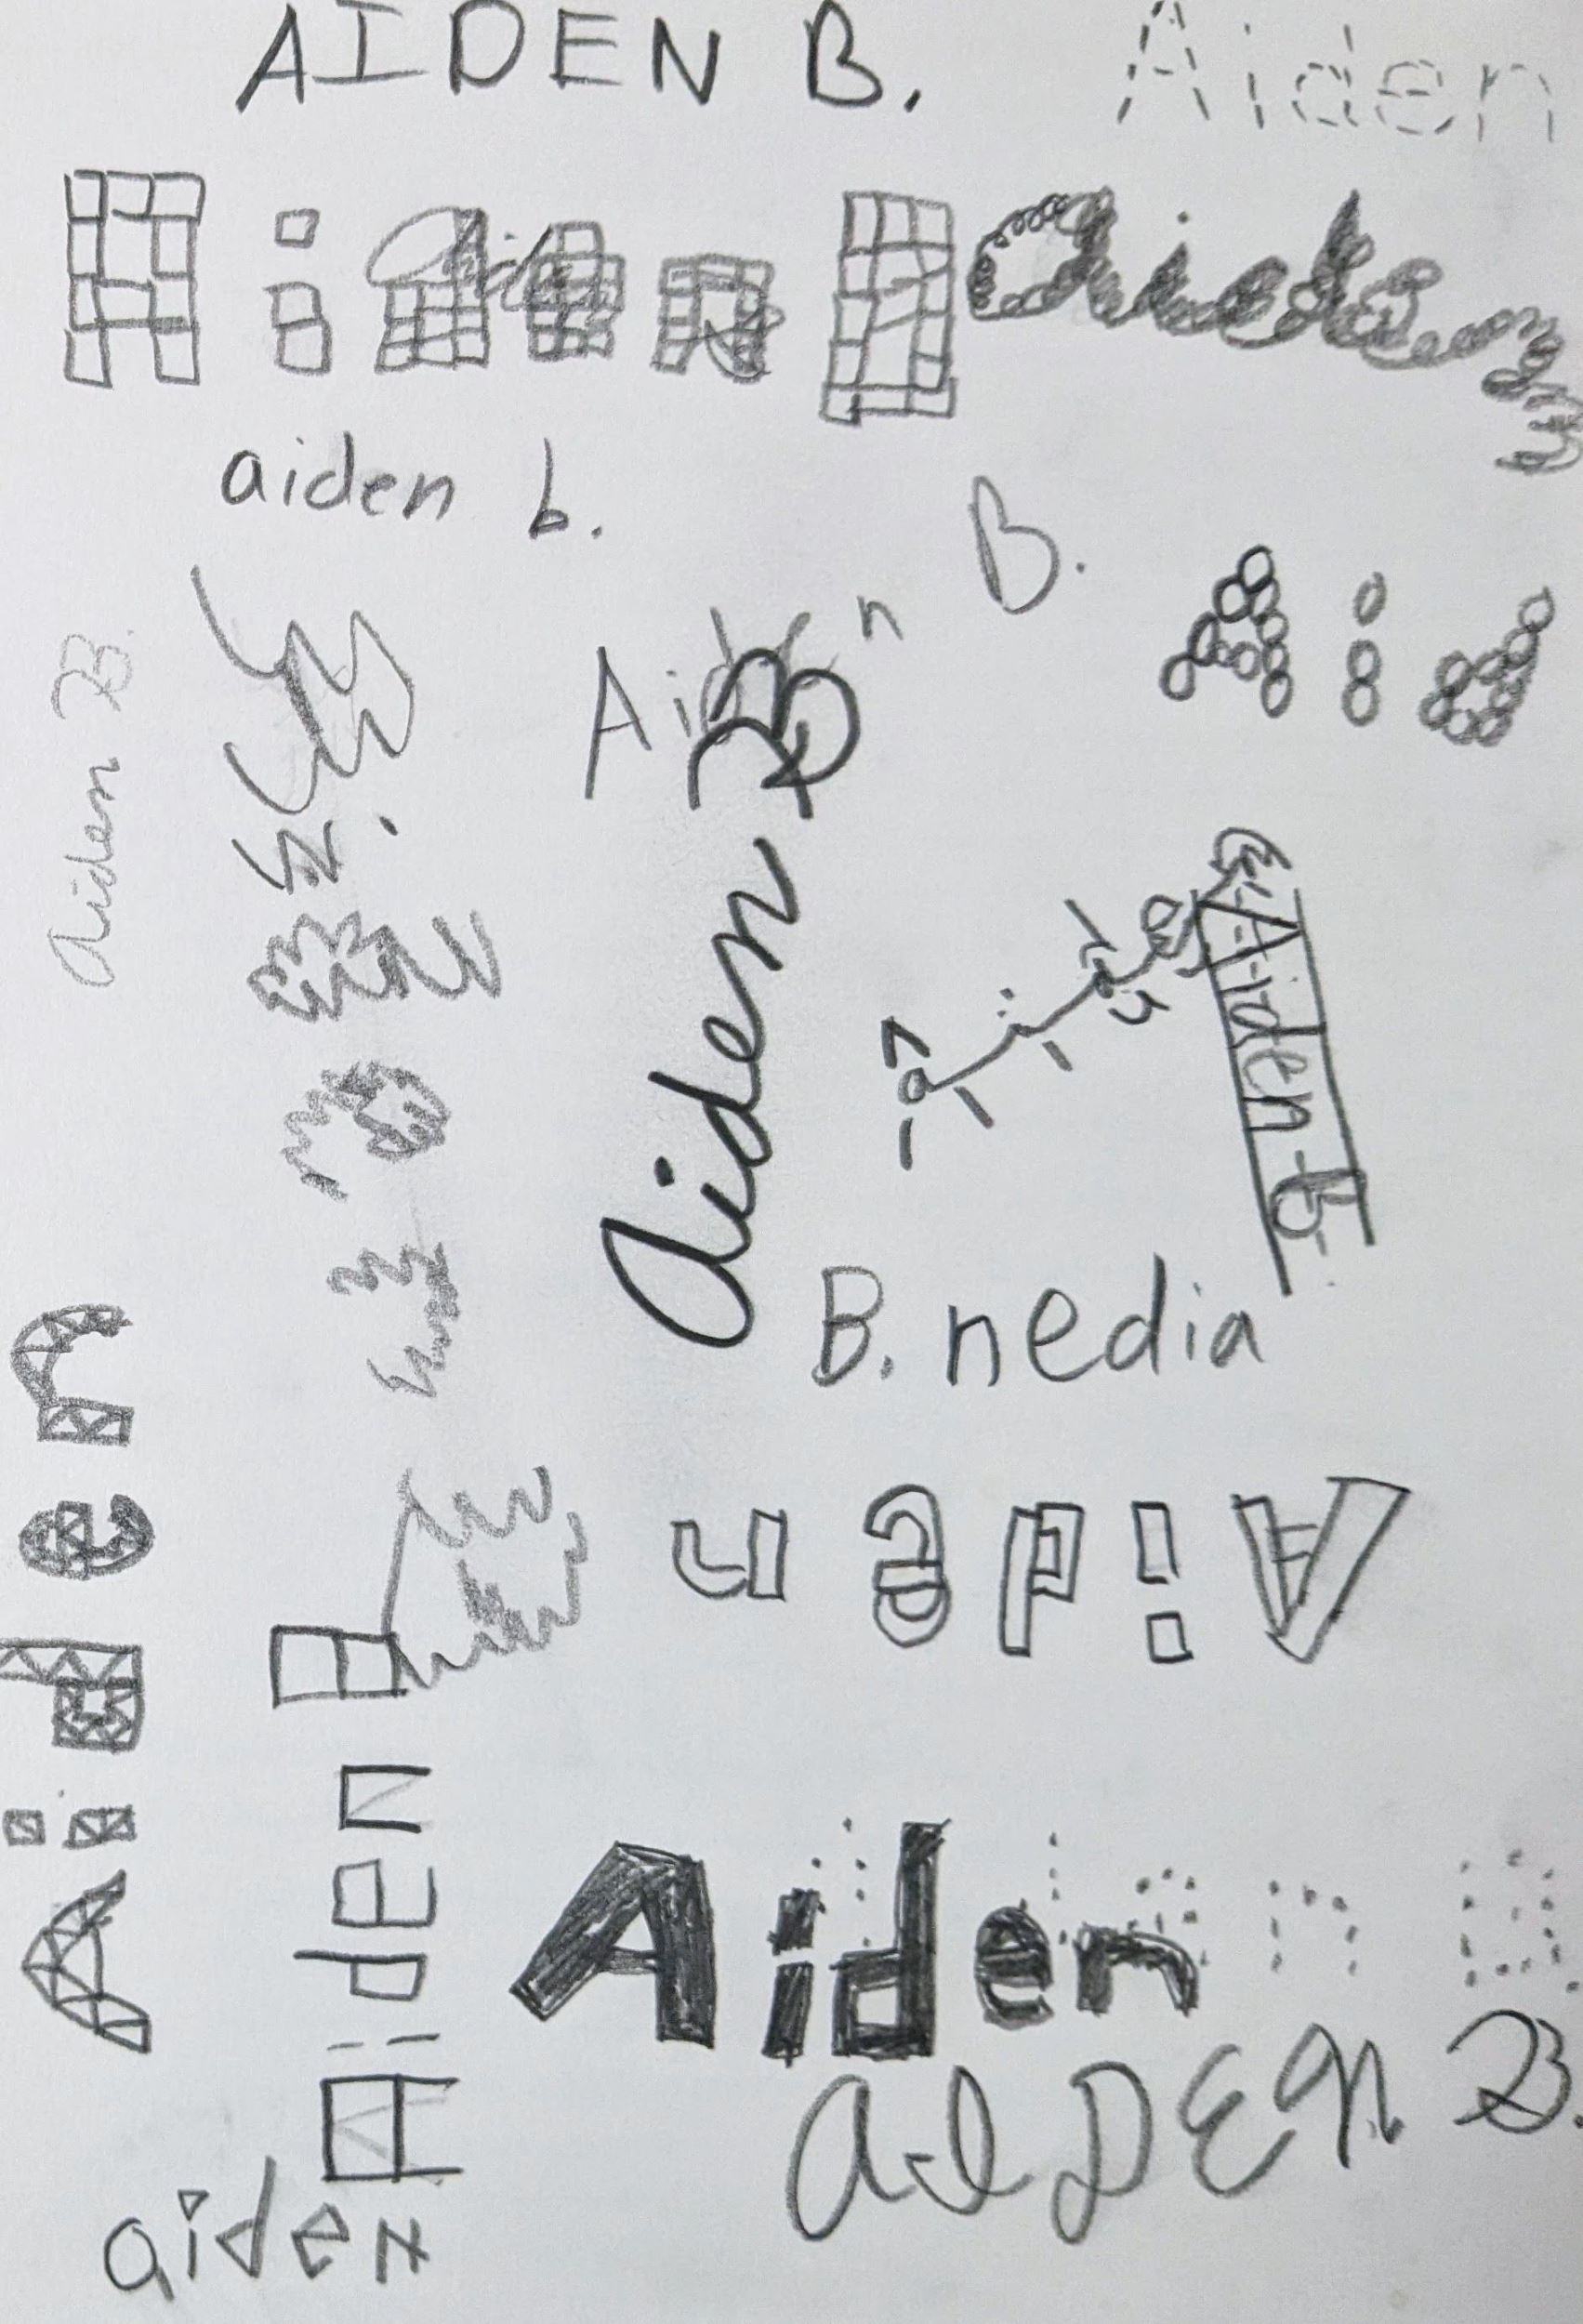 AIDEN B.
Aiden
Aiden B
Aiden
Aiden
aiden b.
Aiden B.
Aid
Aiden B.
Aiden B
Aiden B
B. nedia
Aiden
Aiden
Aiden B
Aiden
Aiden B.
AIDEN B.
aiden